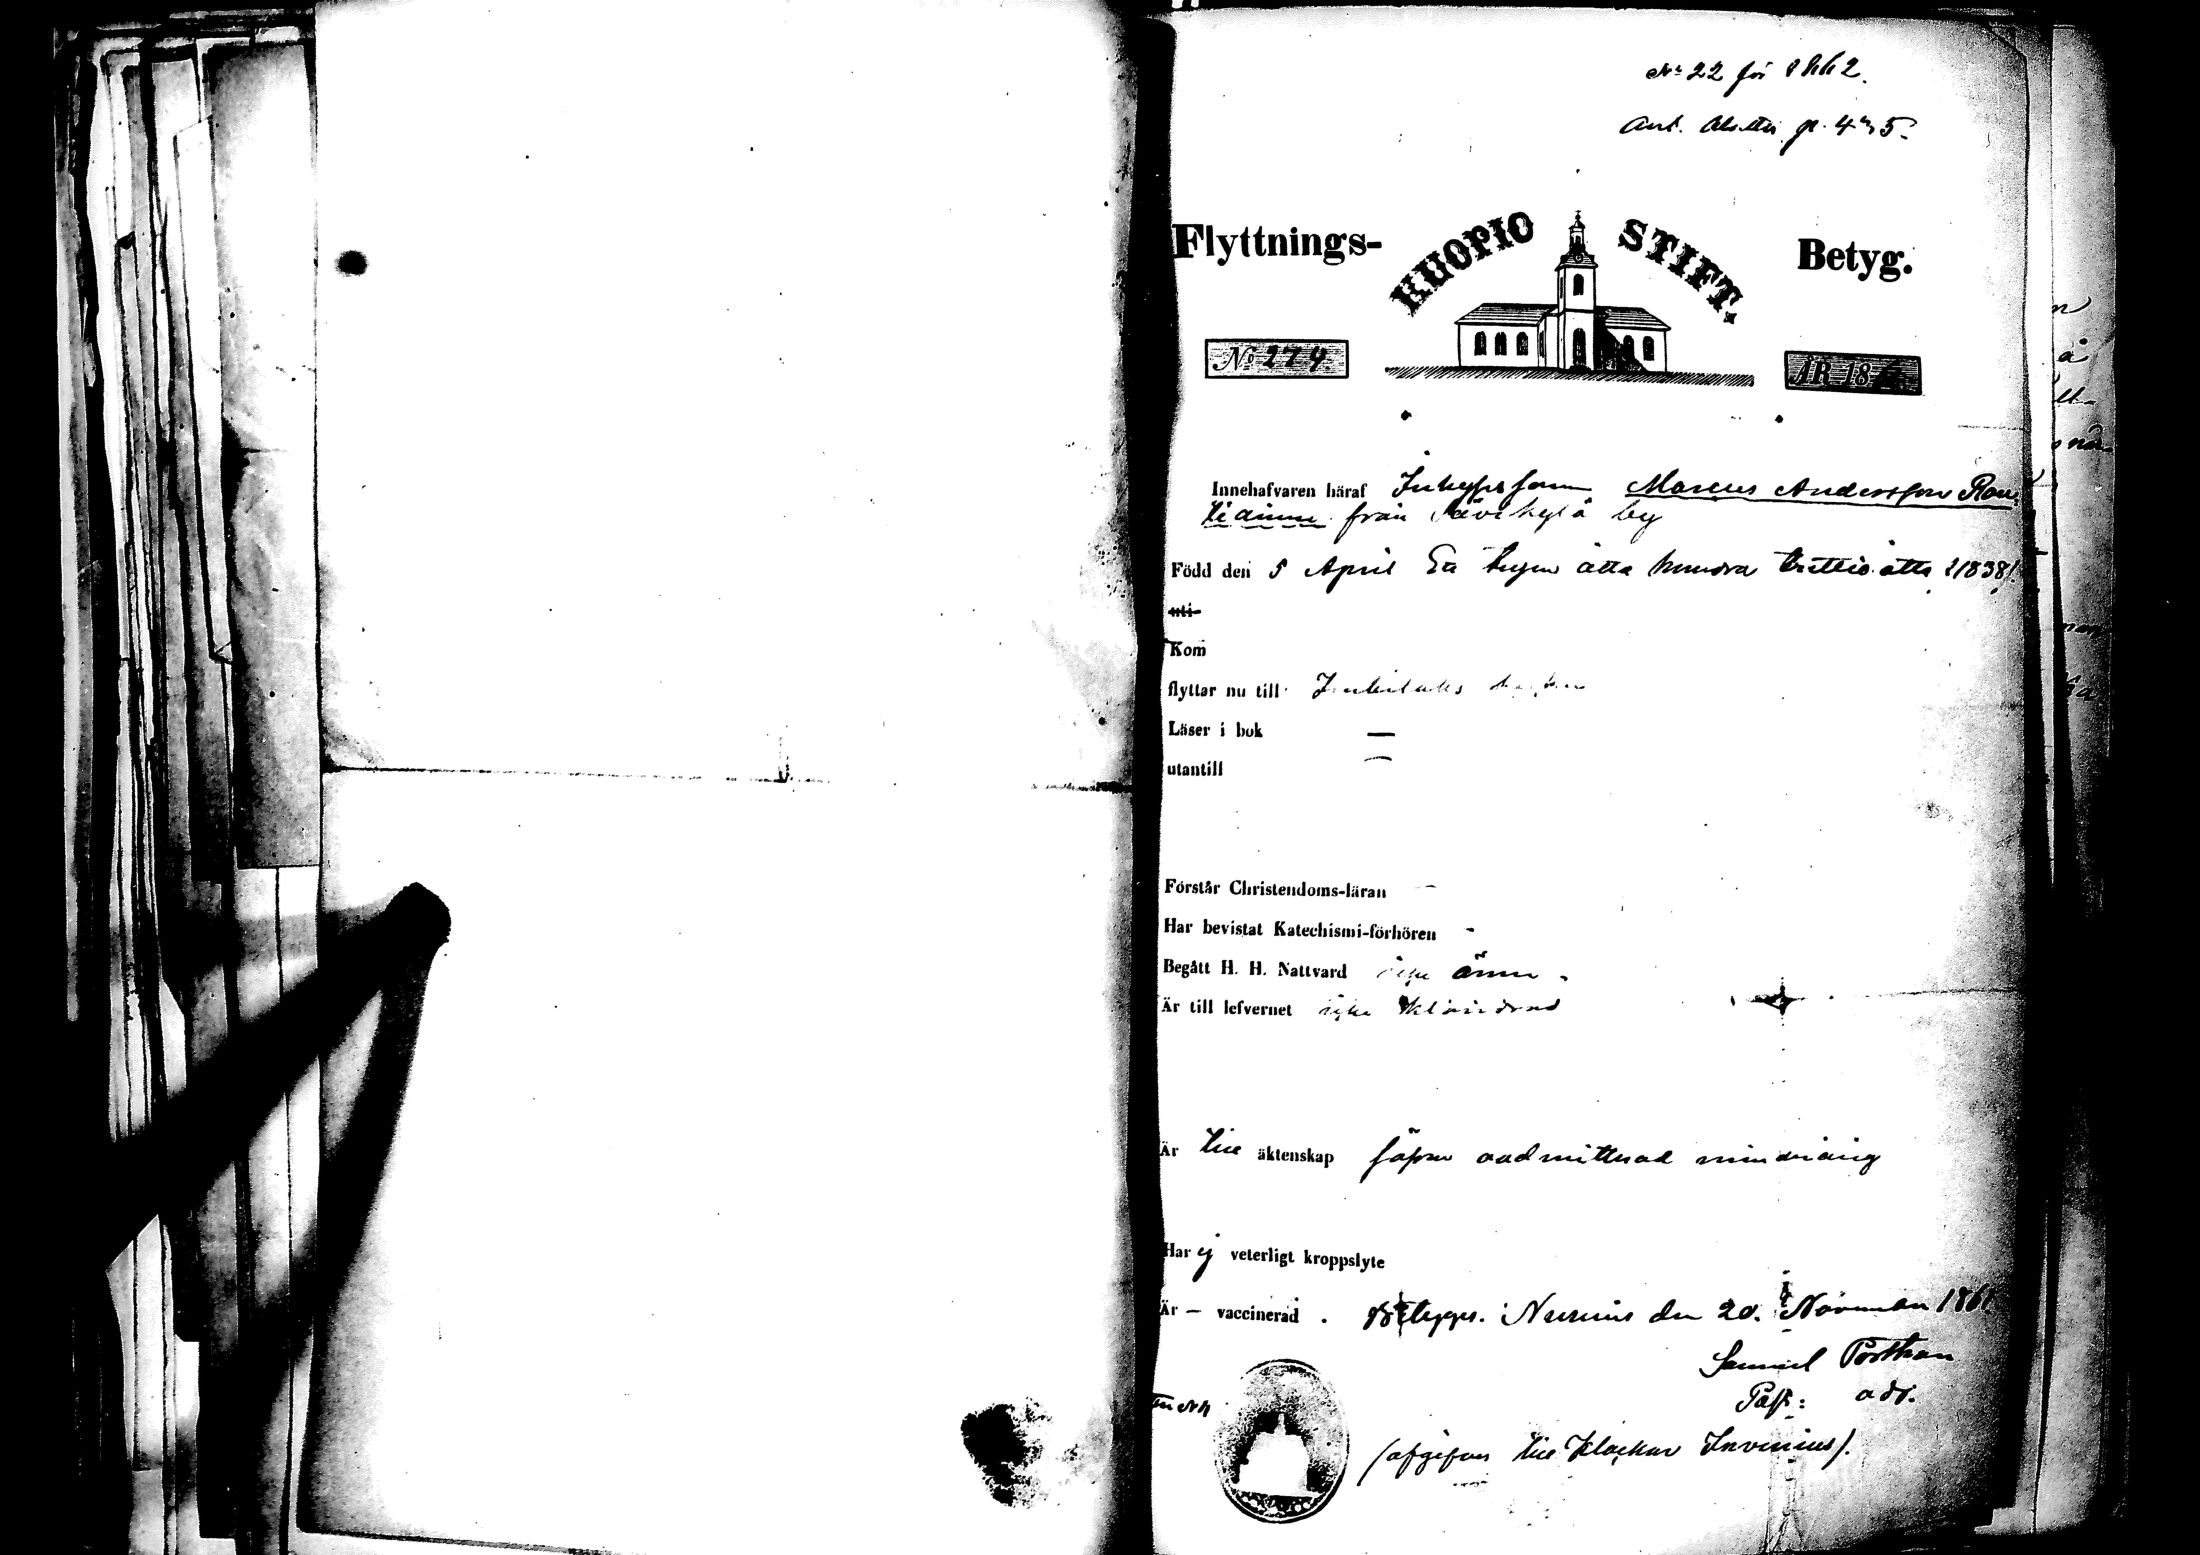 No 22 för 1862.
Ank. p. 435.
Flyttnings- KUOPIO STIFT. Betyg.
No 279. ÅR 18
Innehafvaren häraf Inhysessonen Marcus Andersson Rau
tiainen från Sävikylä by
Född den 5 April Ett tusen åtta hundra trettio åtta /1838/
uti
Kom
flyttar nu till
Läser i bok —
utantill —
Förstår Christendoms-läran —
Har bevistat Katechismi-förhören -
Begått H. H. Nattvard icke ännu -
Är till lefvernet icke klandrad
Är till äktenskap såsom oadmitterad minderårig
Har ej veterligt kroppslyte
Är — vaccinerad . Betygas. Nurmis den 20. November 1861
Samuel Porthan
Past: adj.
(afgifven till Klockar Invenius).